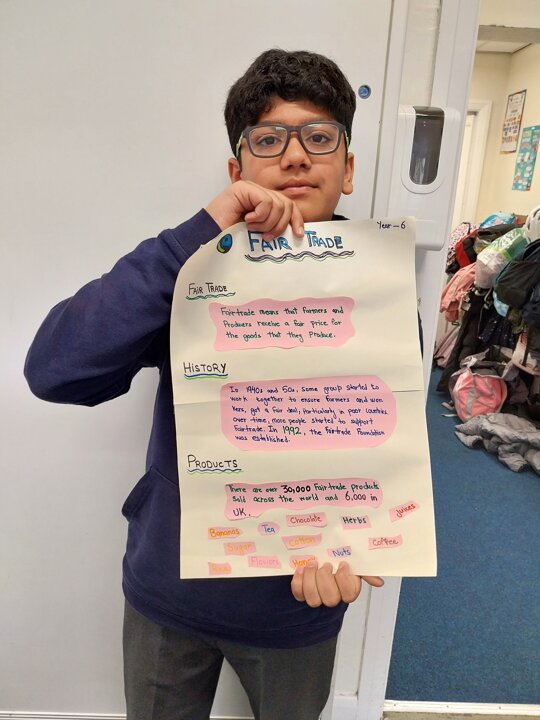 Year - 6
FAIR TRADE
FAIR TRADE
Fairtrade means that farmers and
Producers receive a fair price for
the goods that they Produce.
HISTORY
In 1940s and 50s, Some group started to
work together to ensure farmers and wor
kers, got a fair deal, Particularly in poor countries
over time, more people started to support
Fairtrade. In 1992, the Fairtrade Foundation
was established.
PRODUCTS
There are over 30,000 Fairtrade products
Sold across the world and 6,000 in
UK.
Bananas Tea Chocolate Herbs Juices
Sugar Cotton Nuts Coffee
Flowers